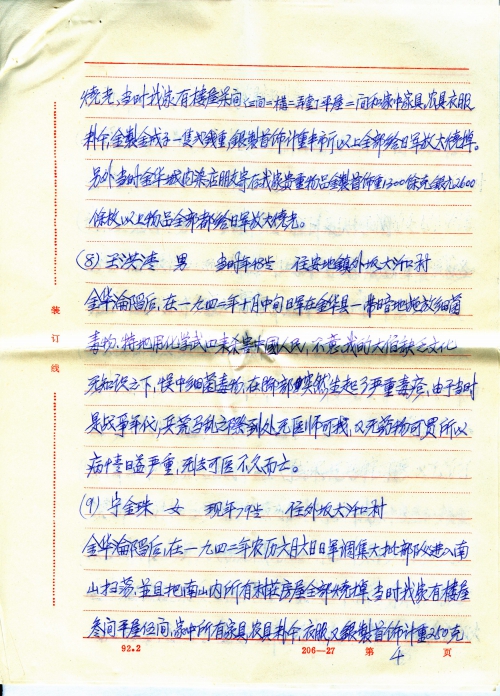 烧光,当时我家有楼屋 间(三间一横二弄堂)平屋二间和家中家具,农具衣服
金製金戒子一隻 重,銀製首饰计重 以上全部给日军放火烧掉。
另外当时金华城内 店朋友寄存我家贵重物品金製首饰重1300余 銀元2600
余枚以上物品全部都给日军放火烧光。
(8) 王洪 男 当时年48岁 住安地鎮外坂大 口村
金华淪陷后,在一九四二年十月中旬日军在金华县一带暗地施放细菌
毒物,特地用化学武口来杀害中國人民,不意我的大伯缺乏文化
无知识之下,慢中细菌毒物,在 部突然生起了严重毒疮,由于当时
是战爭年代,兵荒马乱之際到处无医师可找,又无药物可買所以
病情日益严重,无法可医不久而亡。
(9) 宁金珠 女 现年79岁 住外坂大 口村
金华淪陷后,在一九四二年农历六月 日日軍调集大批部队进入南
山扫荡,並且把南山内所有村庄房屋全部烧掉,当时我家有楼屋
叁间平屋伍间,家中所有家具,农具 衣服,又銀製首饰计重250克
装
订
线
92.2 206—27 第 4 页